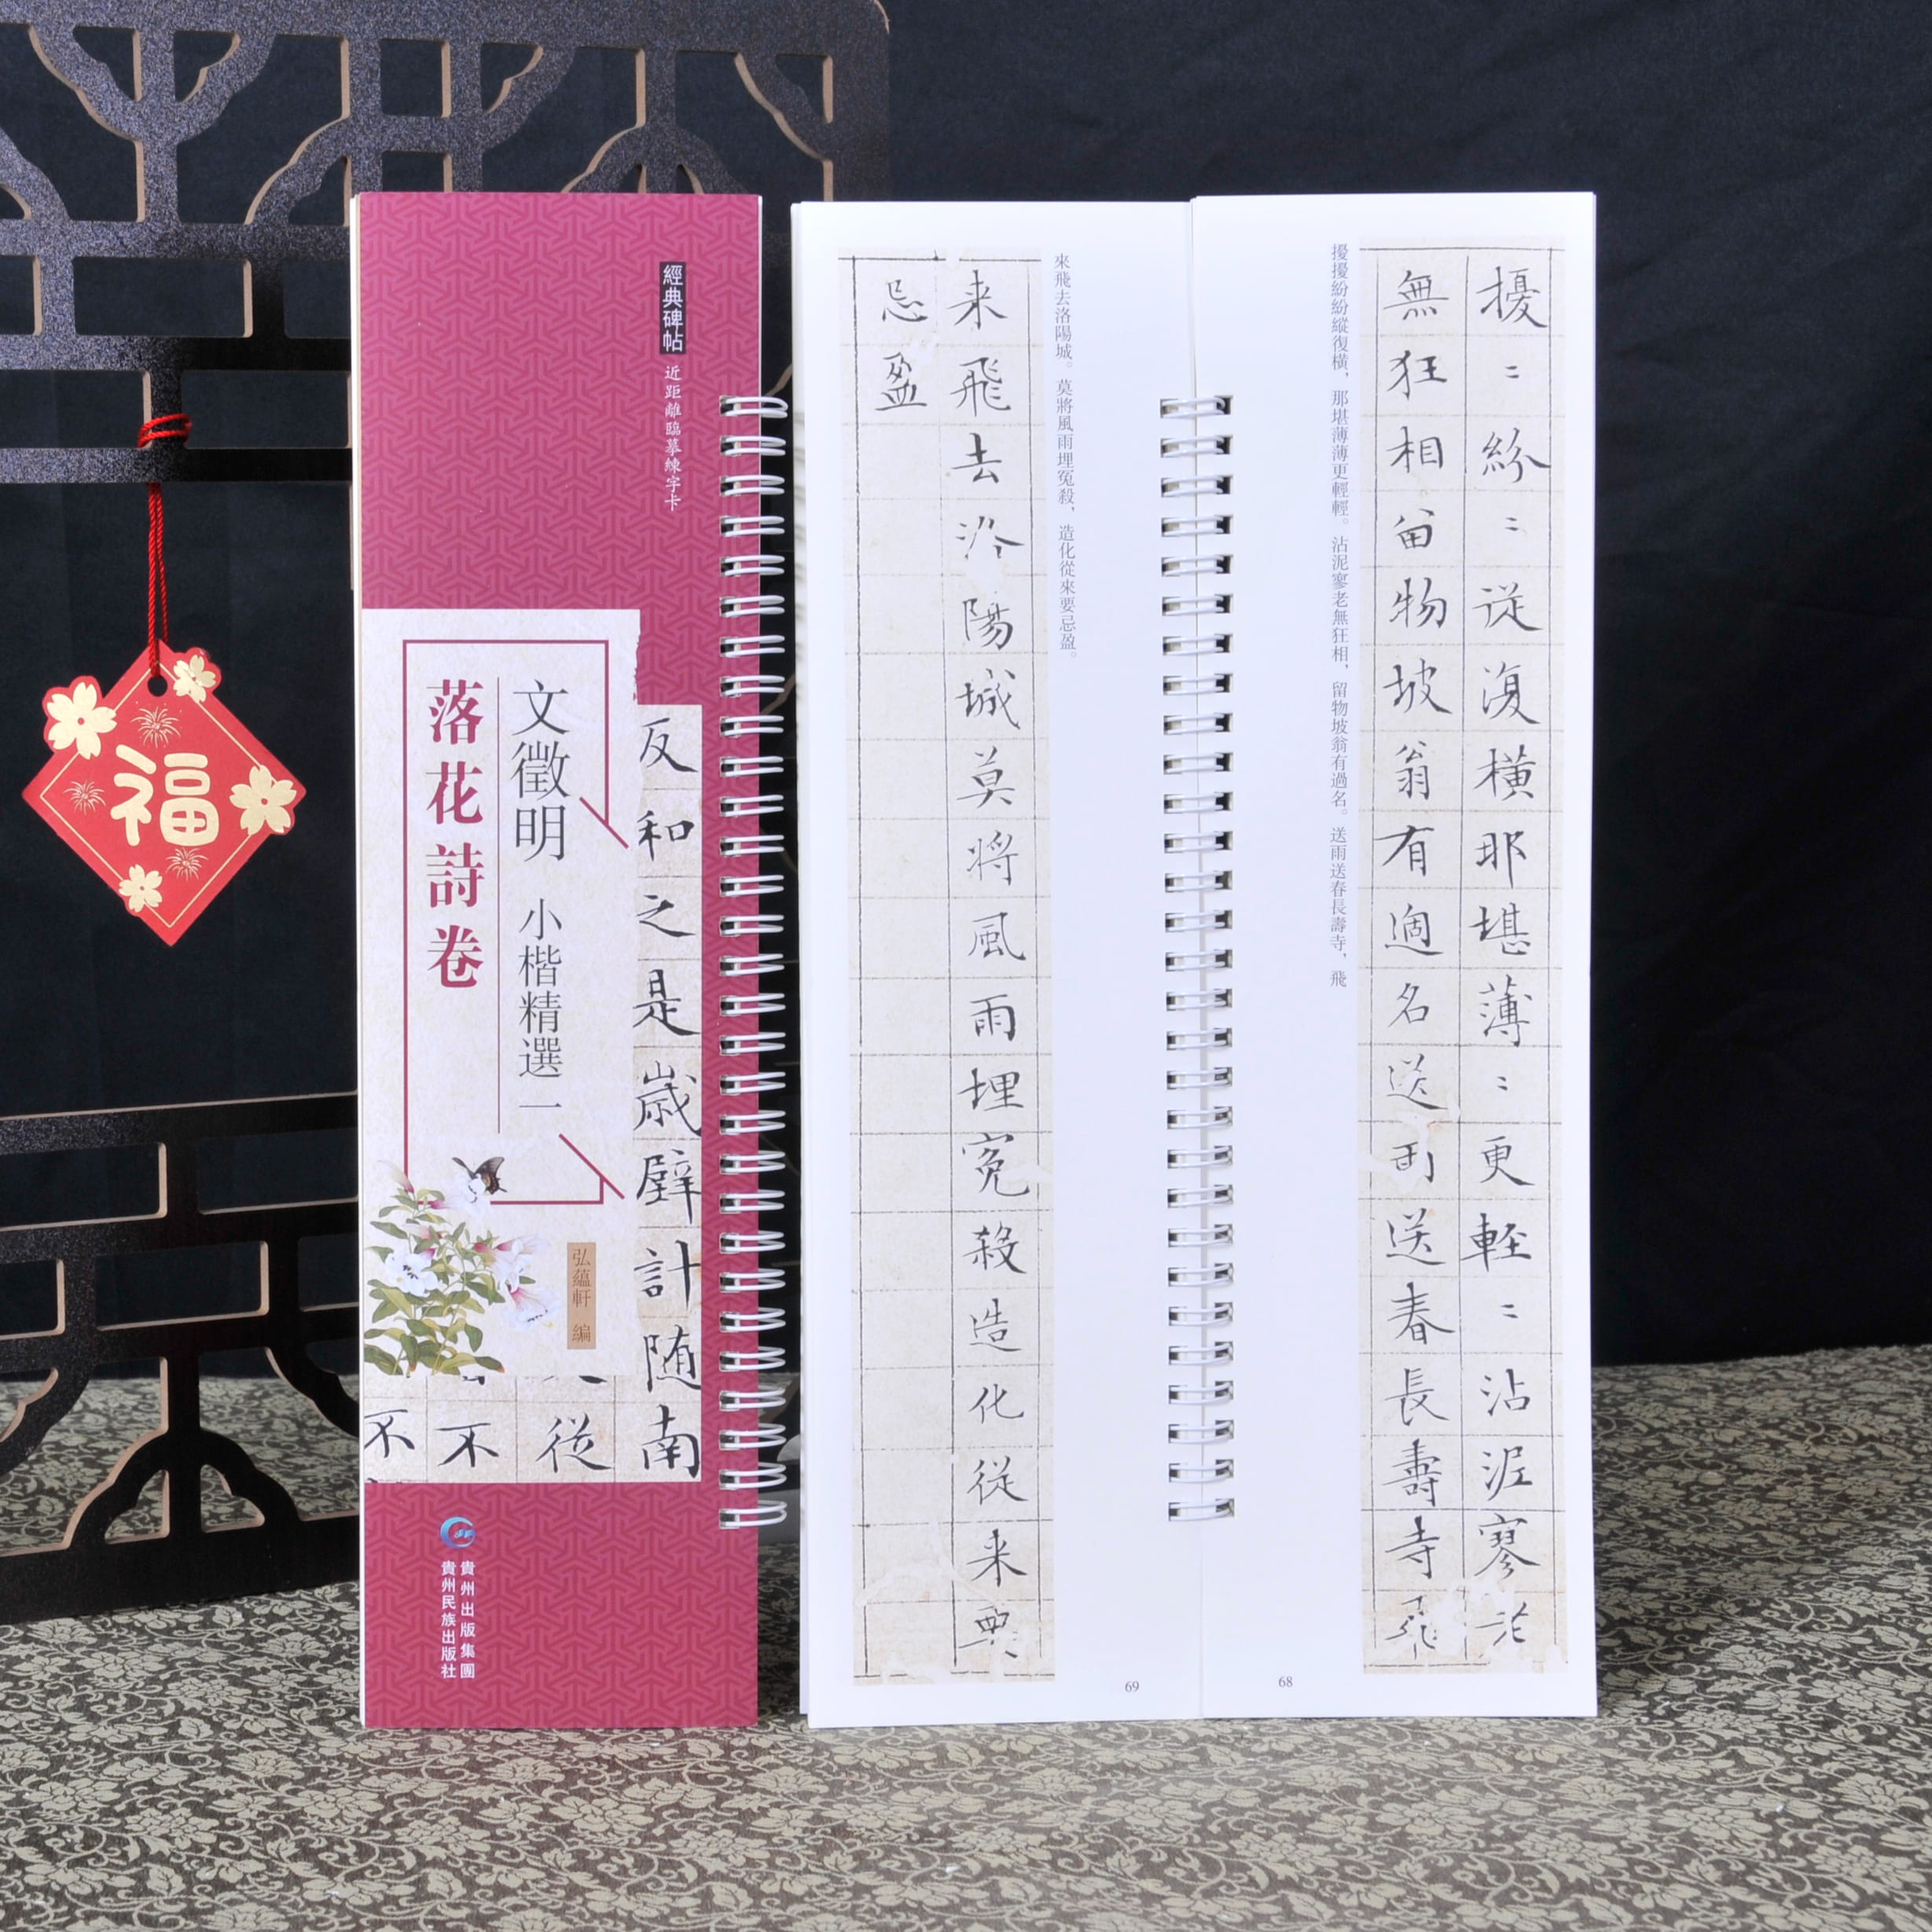 福
經典碑帖
近距離臨摹練字卡
文徵明 小楷精選一
落花詩卷
弘蘊軒 編
反和之是歳壁計随南
從
不
不
貴州出版集團
貴州民族出版社
擾〻紛〻從復橫那堪薄〻更輕〻沾泥寥老
無狂相留物坡翁有過名送雨送春長壽寺飛
擾擾紛紛縱復橫，那堪薄薄更輕輕。沾泥寥老無狂相，留物坡翁有過名。送雨送春長壽寺，飛
68
來飛去洛陽城。莫將風雨埋冤殺，造化從來要忌盈。
来飛去洛陽城莫將風雨埋冤殺造化從来要
忌盈
69